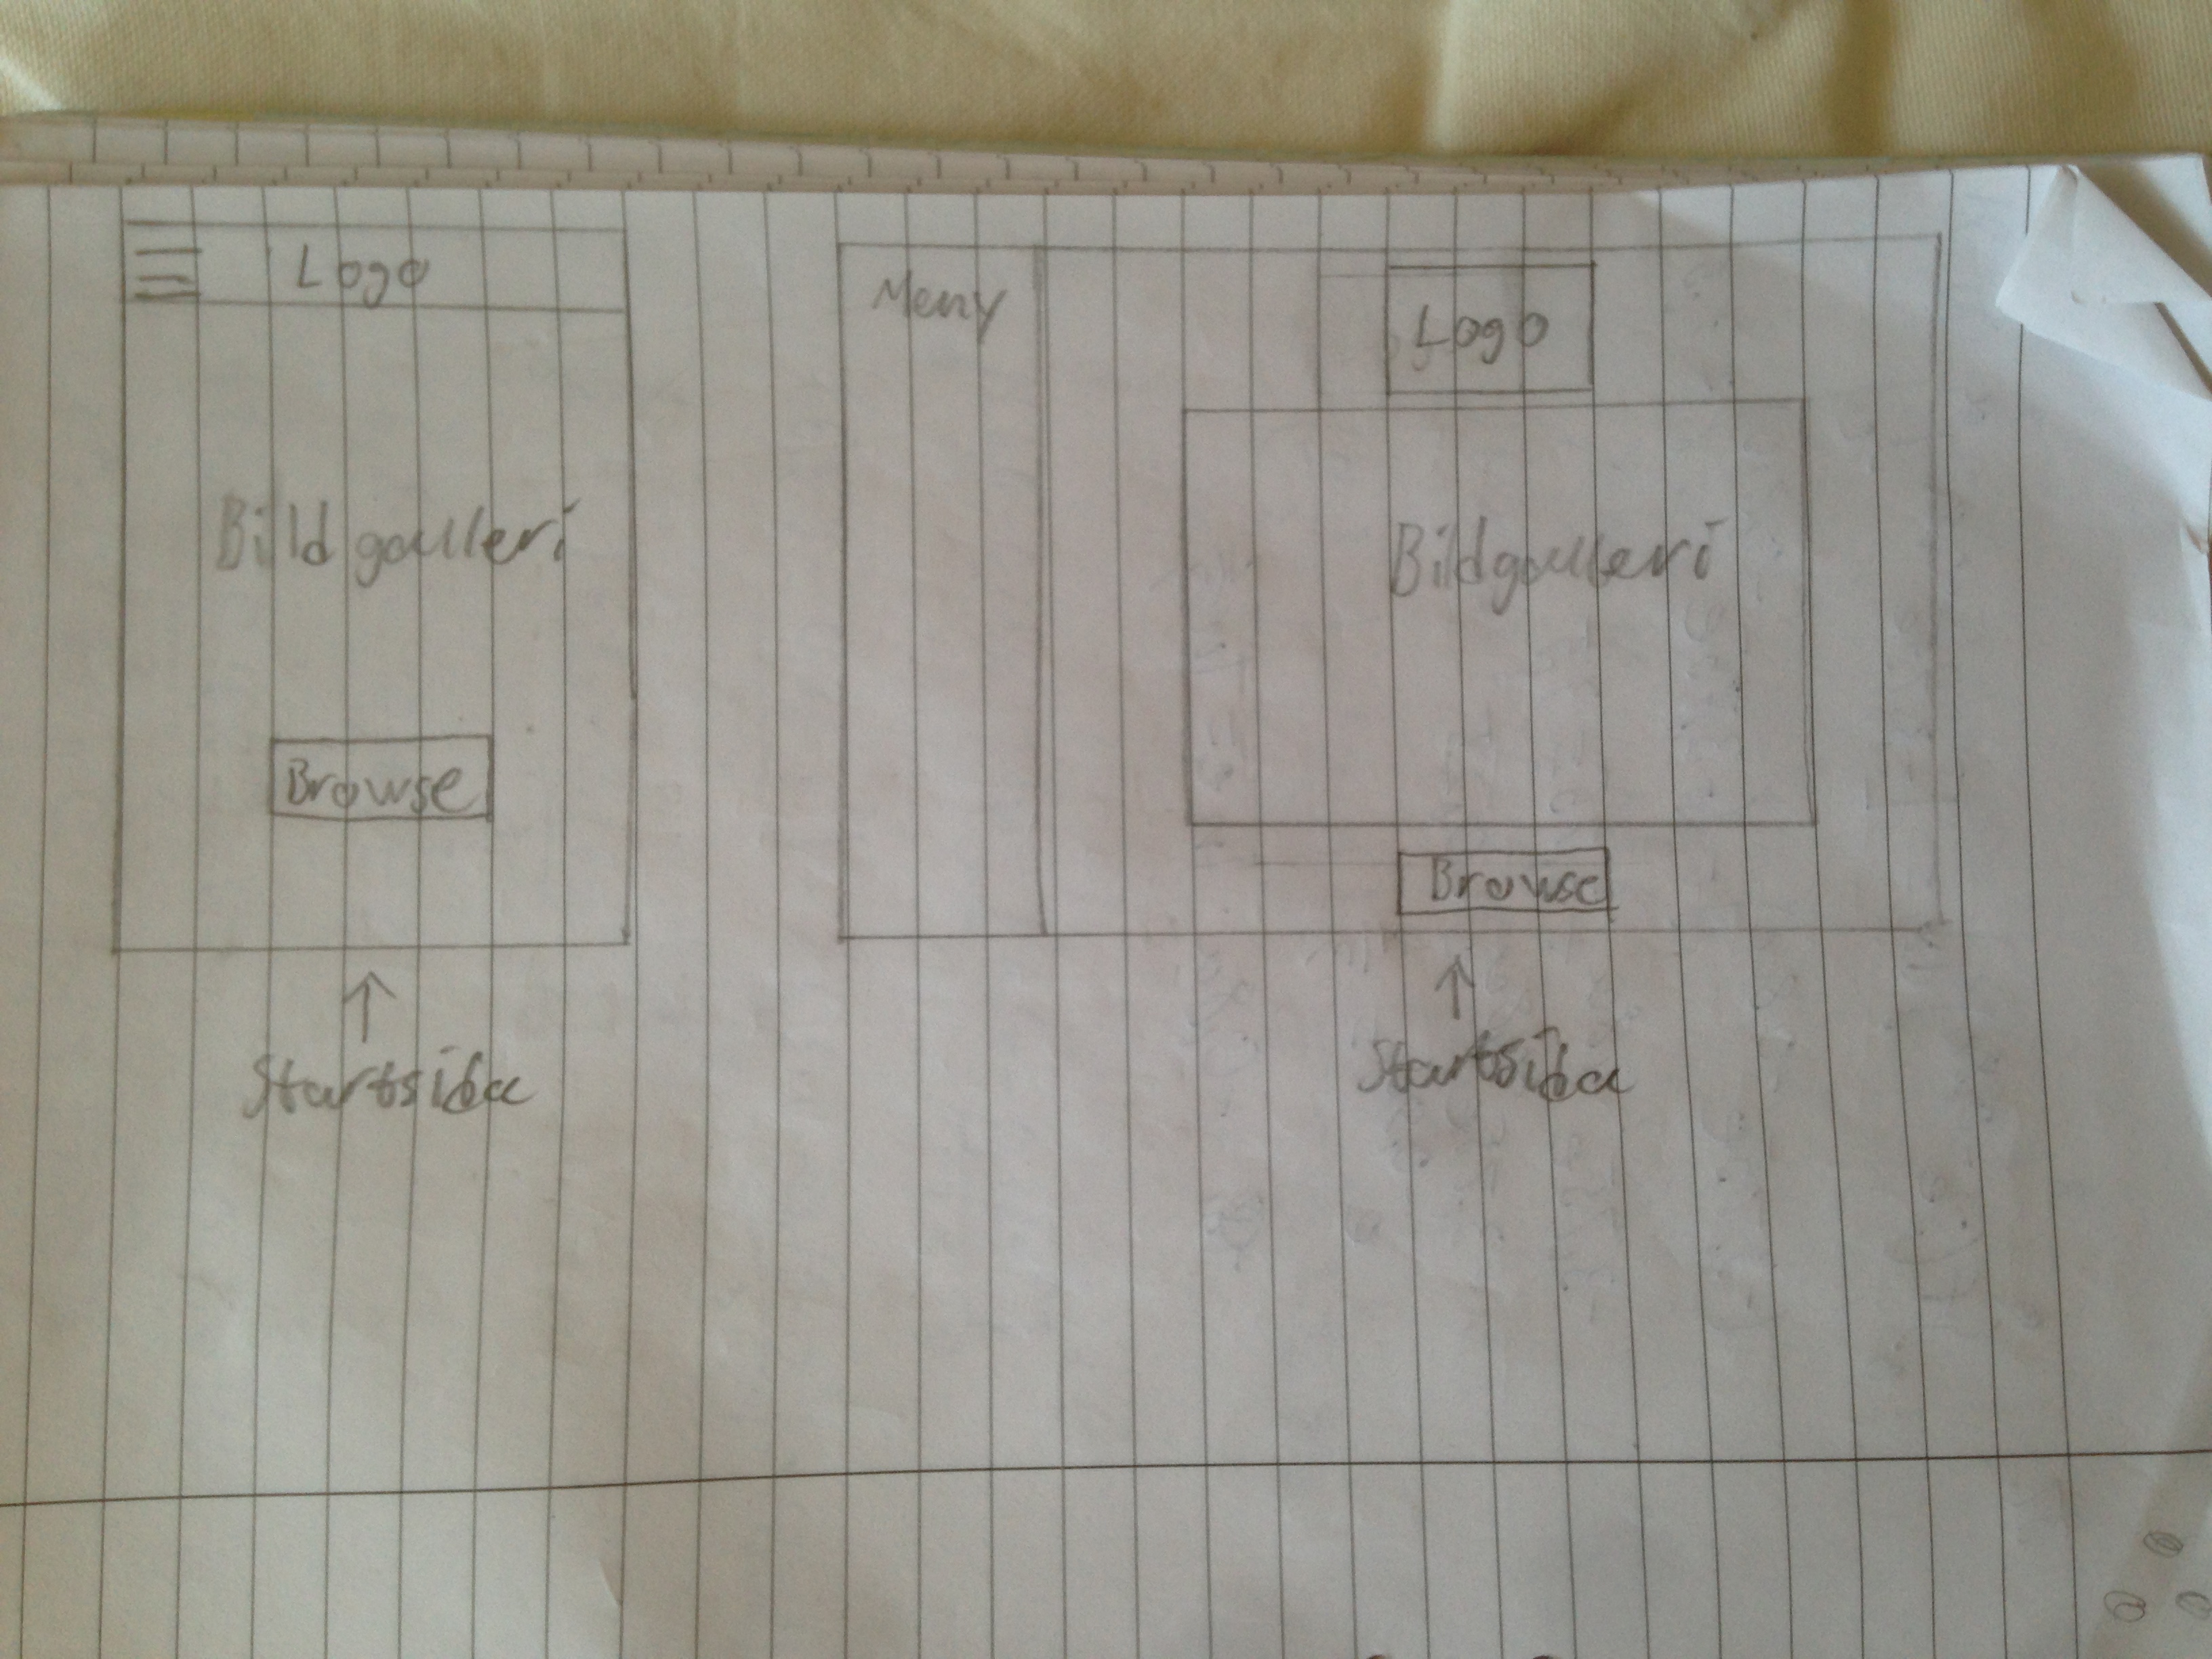 Logo
Bildgalleri
Browse
Startsida
Meny
Logo
Bildgalleri
Browse
Startsida